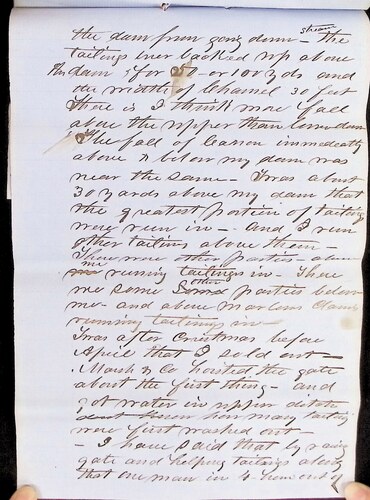 stream
the dam from going down - the
tailings ever backed up above
the dam for 50 - or 100 yds and
the width of Channel 30 feet
There is I think more fall
above the upper than lower dam
The fall of Cañon immediately
above & below my dam was
near the same - I was about
30 yards above my dam that
the greatest portion of tailings
were run in - and I run
other tailings above them -
There were other parties above
me running tailings in - There
were some other parties below
me - and above Marlows Claim
running tailings in -
I was after Christmas before
April that I sold out -
Marsh & Co hoisted the gate
about the first thing - and
got water in upper ditch
dont know how many tailings
were first washed out -
- I have said that by raising
gate and helping tailings along
that one man in 4 hours could